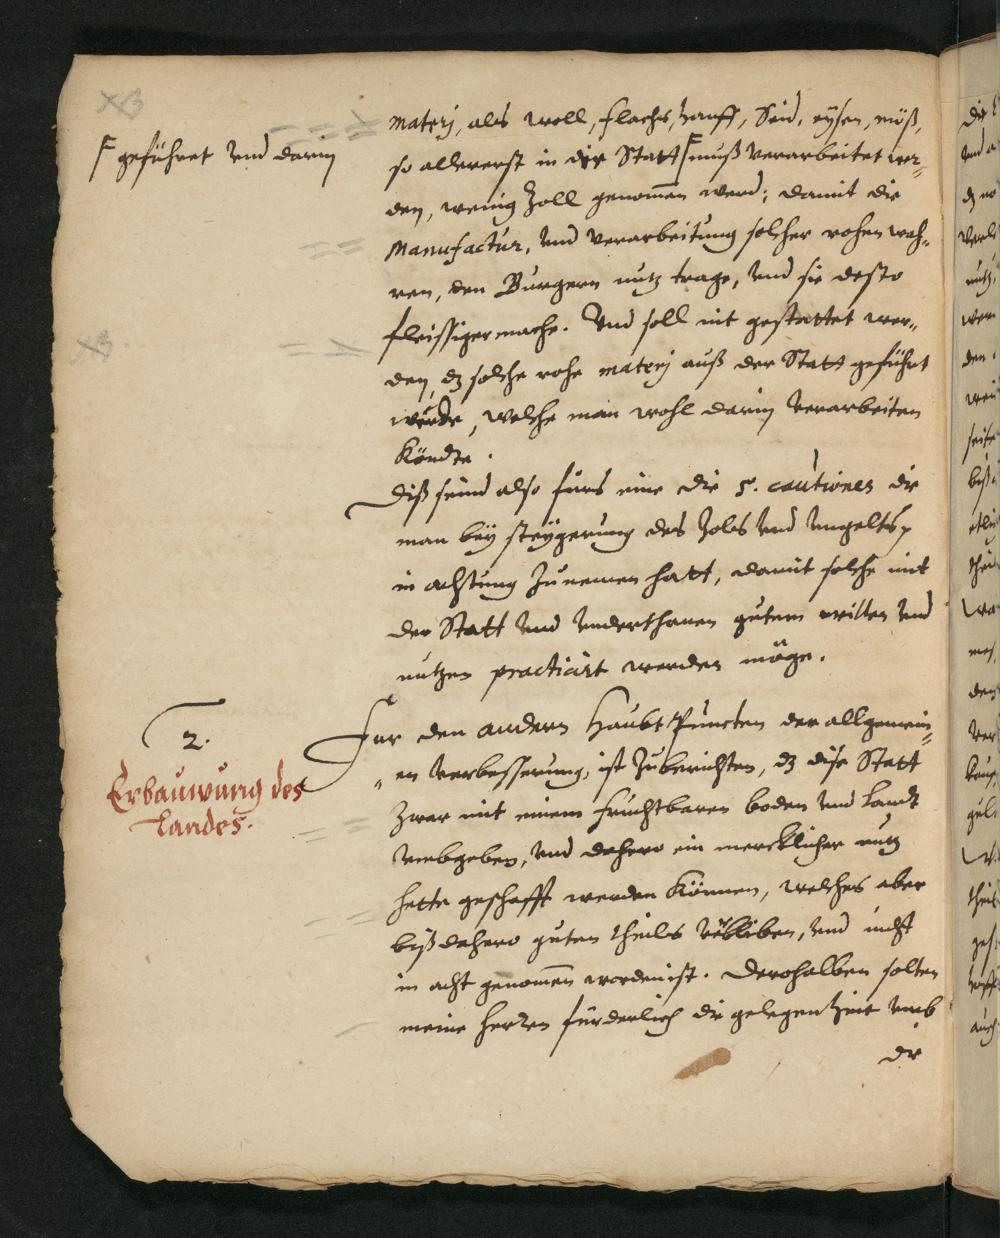 materj, als woll, flachs, hanff, Seid, eysen, möß,
Γ geführet vnd darin
so allererst in die Statt Γ muß verarbeitet wer-
den, wenig Zoll genom̄en werd; damit die
Manufactur, vnd verarbeitung solcher rohen wah-
ren, den Burgern nutz trage, vnd sie desto
fleissiger mache. Vnd soll nit gestattet wer-
den, dz solche rohe materj auß der Statt geführt
würde, welche man wohl darin verarbeiten
köndte.
Diß seind also fürs eine die 5. cautiones die
man bey steygerung des Zols vnd vngelts
in achtung zunemen hatt, damit solche mit
der Statt vnd vnderthanen gutem willen vnd
nutzen practicirt werden möge.
2.
Erbauwung des
Landes.
Fur den andern Haubt Puncten der allgemein-
en verbesserung, ist zuberichten, dz dise Statt
zwar mit einem fruchtbaren boden vnd Landt
vmbgeben, vnd dahero ein mercklicher nutz
hette geschafft werden können, welches aber
biß dahero guten theils verbliben, vnd nicht
in acht genom̄en worden ist. Derohalben solten
meine herren fürderlich die gelegenheit vmb
die